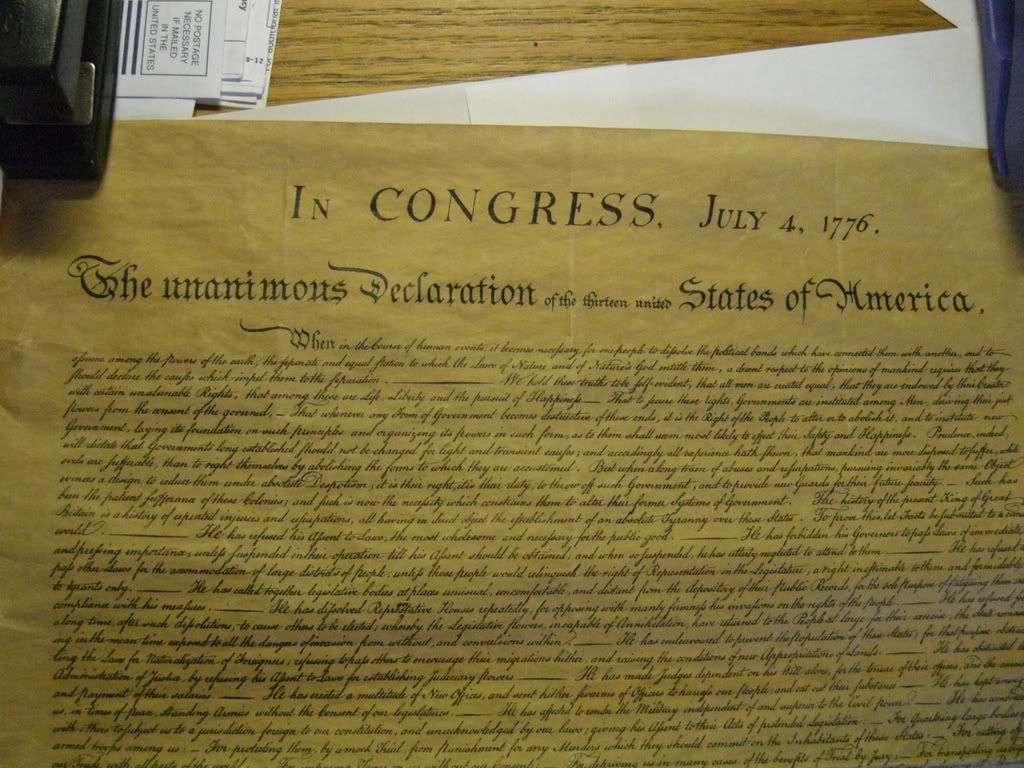 NO POSTAGE
NECESSARY
IF MAILED
IN THE
UNITED STATES
8-12
IN CONGRESS, JULY 4, 1776.
The unanimous Declaration of the thirteen united States of America,
When in the Course of human events, it becomes necessary for one people to dissolve the political bands which have connected them with another, and to
assume among the powers of the earth, the separate and equal station to which the Laws of Nature and of Nature's God entitle them, a decent respect to the opinions of mankind requires that they
should declare the causes which impel them to the separation. We hold these truths to be self-evident, that all men are created equal, that they are endowed by their Creator
with certain unalienable Rights, that among these are Life, Liberty and the pursuit of Happiness.— That to secure these rights, Governments are instituted among Men, deriving their just
powers from the consent of the governed,— That whenever any Form of Government becomes destructive of these ends, it is the Right of the People to alter or to abolish it, and to institute new
Government, laying its foundation on such principles and organizing its powers in such form, as to them shall seem most likely to effect their Safety and Happiness. Prudence, indeed,
will dictate that Governments long established should not be changed for light and transient causes; and accordingly all experience hath shewn, that mankind are more disposed to suffer, while
evils are sufferable, than to right themselves by abolishing the forms to which they are accustomed. But when a long train of abuses and usurpations, pursuing invariably the same Object
evinces a design to reduce them under absolute Despotism, it is their right, it is their duty, to throw off such Government, and to provide new Guards for their future security.— Such has
been the patient sufferance of these Colonies; and such is now the necessity which constrains them to alter their former Systems of Government. The history of the present King of Great
Britain is a history of repeated injuries and usurpations, all having in direct object the establishment of an absolute Tyranny over these States. To prove this, let Facts be submitted to a
world. He has refused his Assent to Laws, the most wholesome and necessary for the public good. He has forbidden his Governors to pass Laws of immediate
and pressing importance, unless suspended in their operation till his Assent should be obtained; and when so suspended, he has utterly neglected to attend to them. He has refused to
pass other Laws for the accommodation of large districts of people, unless those people would relinquish the right of Representation in the Legislature, a right inestimable to them and formidable
to tyrants only. He has called together legislative bodies at places unusual, uncomfortable, and distant from the depository of their Public Records, for the sole purpose of fatiguing them into
compliance with his measures. He has dissolved Representative Houses repeatedly, for opposing with manly firmness his invasions on the rights of the people. He has refused for
a long time, after such dissolutions, to cause others to be elected; whereby the Legislative powers, incapable of Annihilation, have returned to the People at large for their exercise; the State remain
ing in the mean time exposed to all the dangers of invasion from without, and convulsions within. He has endeavoured to prevent the population of these States; for that purpose obstruc
ting the Laws for Naturalization of Foreigners; refusing to pass others to encourage their migrations hither, and raising the conditions of new Appropriations of Lands. He has obstructed the
Administration of Justice, by refusing his Assent to Laws for establishing Judiciary powers. He has made Judges dependent on his Will alone, for the tenure of their offices, and the amount
and payment of their salaries. He has erected a multitude of New Offices, and sent hither swarms of Officers to harrass our people, and eat out their substance. He has kept among
us, in times of peace, Standing Armies without the Consent of our legislatures. He has affected to render the Military independent of and superior to the Civil power. He has combined
with others to subject us to a jurisdiction foreign to our constitution, and unacknowledged by our laws; giving his Assent to their Acts of pretended Legislation: For Quartering large bodies of
armed troops among us:— For protecting them, by a mock Trial, from punishment for any Murders which they should commit on the Inhabitants of these States:— For cutting off
our Trade with all parts of the world:— For imposing Taxes on us without our Consent:— For depriving us in many cases, of the benefits of Trial by Jury:— For transporting us